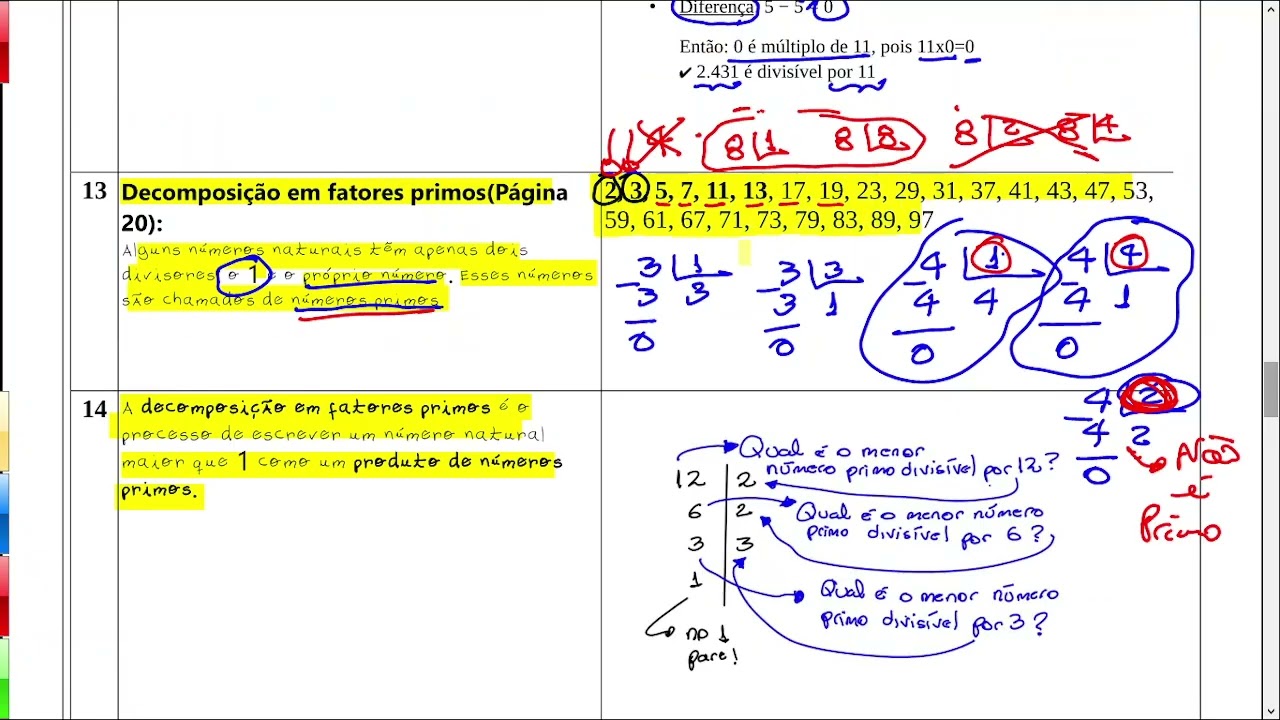 • Diferença 5 − 5 = 0
Então: 0 é múltiplo de 11, pois 11x0=0
✔ 2.431 é divisível por 11
8 1 8 8 8 2 8 4
13 Decomposição em fatores primos(Página
20):
Alguns números naturais têm apenas dois
divisores o 1 e o próprio número. Esses números
são chamados de números primos
2, 3, 5, 7, 11, 13, 17, 19, 23, 29, 31, 37, 41, 43, 47, 53,
59, 61, 67, 71, 73, 79, 83, 89, 97
3 1 3 3 4 1 4 4
−3 3 −3 1 −4 4 −4 1
0 0 0 0
14 A decomposição em fatores primos é o
processo de escrever um número natural
maior que 1 como um produto de números
primos.
4 2
−4 2
0
Não
é
Primo
Qual é o menor
número primo divisível por 12?
12 2
Qual é o menor número
primo divisível por 6?
6 2
3 3
Qual é o menor número
primo divisível por 3?
1
no 1
pare!